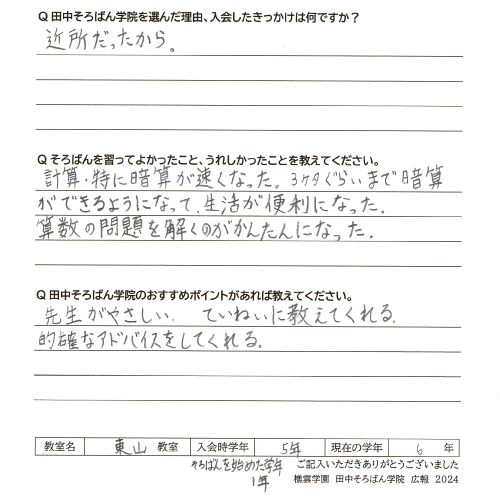 Q 田中そろばん学院を選んだ理由、入会したきっかけは何ですか？
近所だったから。
Q そろばんを習ってよかったこと、うれしかったことを教えてください。
計算・特に暗算が速くなった。3ケタぐらいまで暗算
ができるようになって、生活が便利になった。
算数の問題を解くのがかんたんになった。
Q 田中そろばん学院のおすすめポイントがあれば教えてください。
先生がやさしい。ていねいに教えてくれる。
的確なアドバイスをしてくれる。
教室名 東山 教室 入会時学年 5年 現在の学年 6 年
そろばんを始めた学年 ご記入いただきありがとうございました
1年 橋雲学園 田中そろばん学院 広報 2024